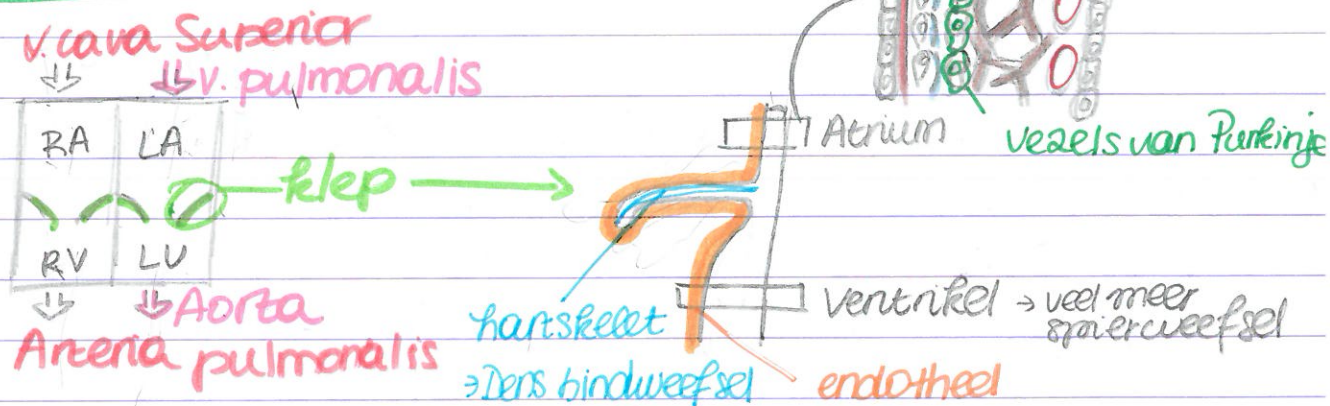 V. cava Superior
V. pulmonalis
RA LA
klep
RV LV
Aorta
Arteria pulmonalis
Atrium
vezels van Purkinje
Ventrikel → veel meer
spierweefsel
hartskelet
→ Dens bindweefsel
endotheel